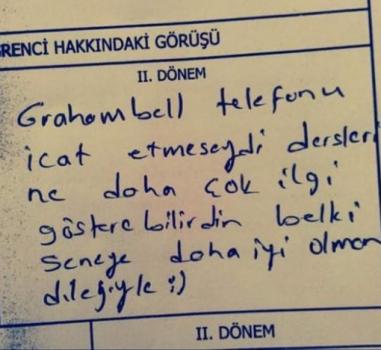 RENCİ HAKKINDAKİ GÖRÜŞÜ
II. DÖNEM
Grahambell telefonu
icat etmeseydi dersleri
ne daha çok ilgi
gösterebilirdin belki
Seneye daha iyi olman
dileğiyle :)
II. DÖNEM